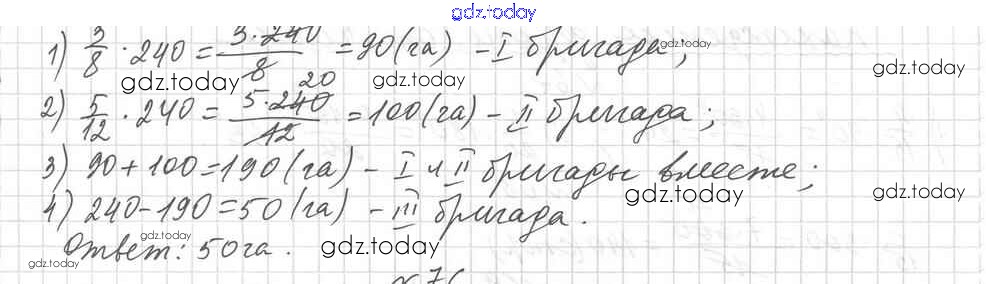 gdz.today
1) 3/8 · 240 = 3·240/8 = 90 (га) – I бригада; gdz.today
gdz.today gdz.today gdz.today
2) 5/12 · 240 = 5·240/12 20 = 100 (га) – II бригада;
3) 90 + 100 = 190 (га) – I и II бригады вместе;
gdz.today gdz.today gdz.today gdz.today
4) 240 – 190 = 50 (га) – III бригада.
gdz.today
Ответ: 50 га. gdz.today gdz.today
gdz.today